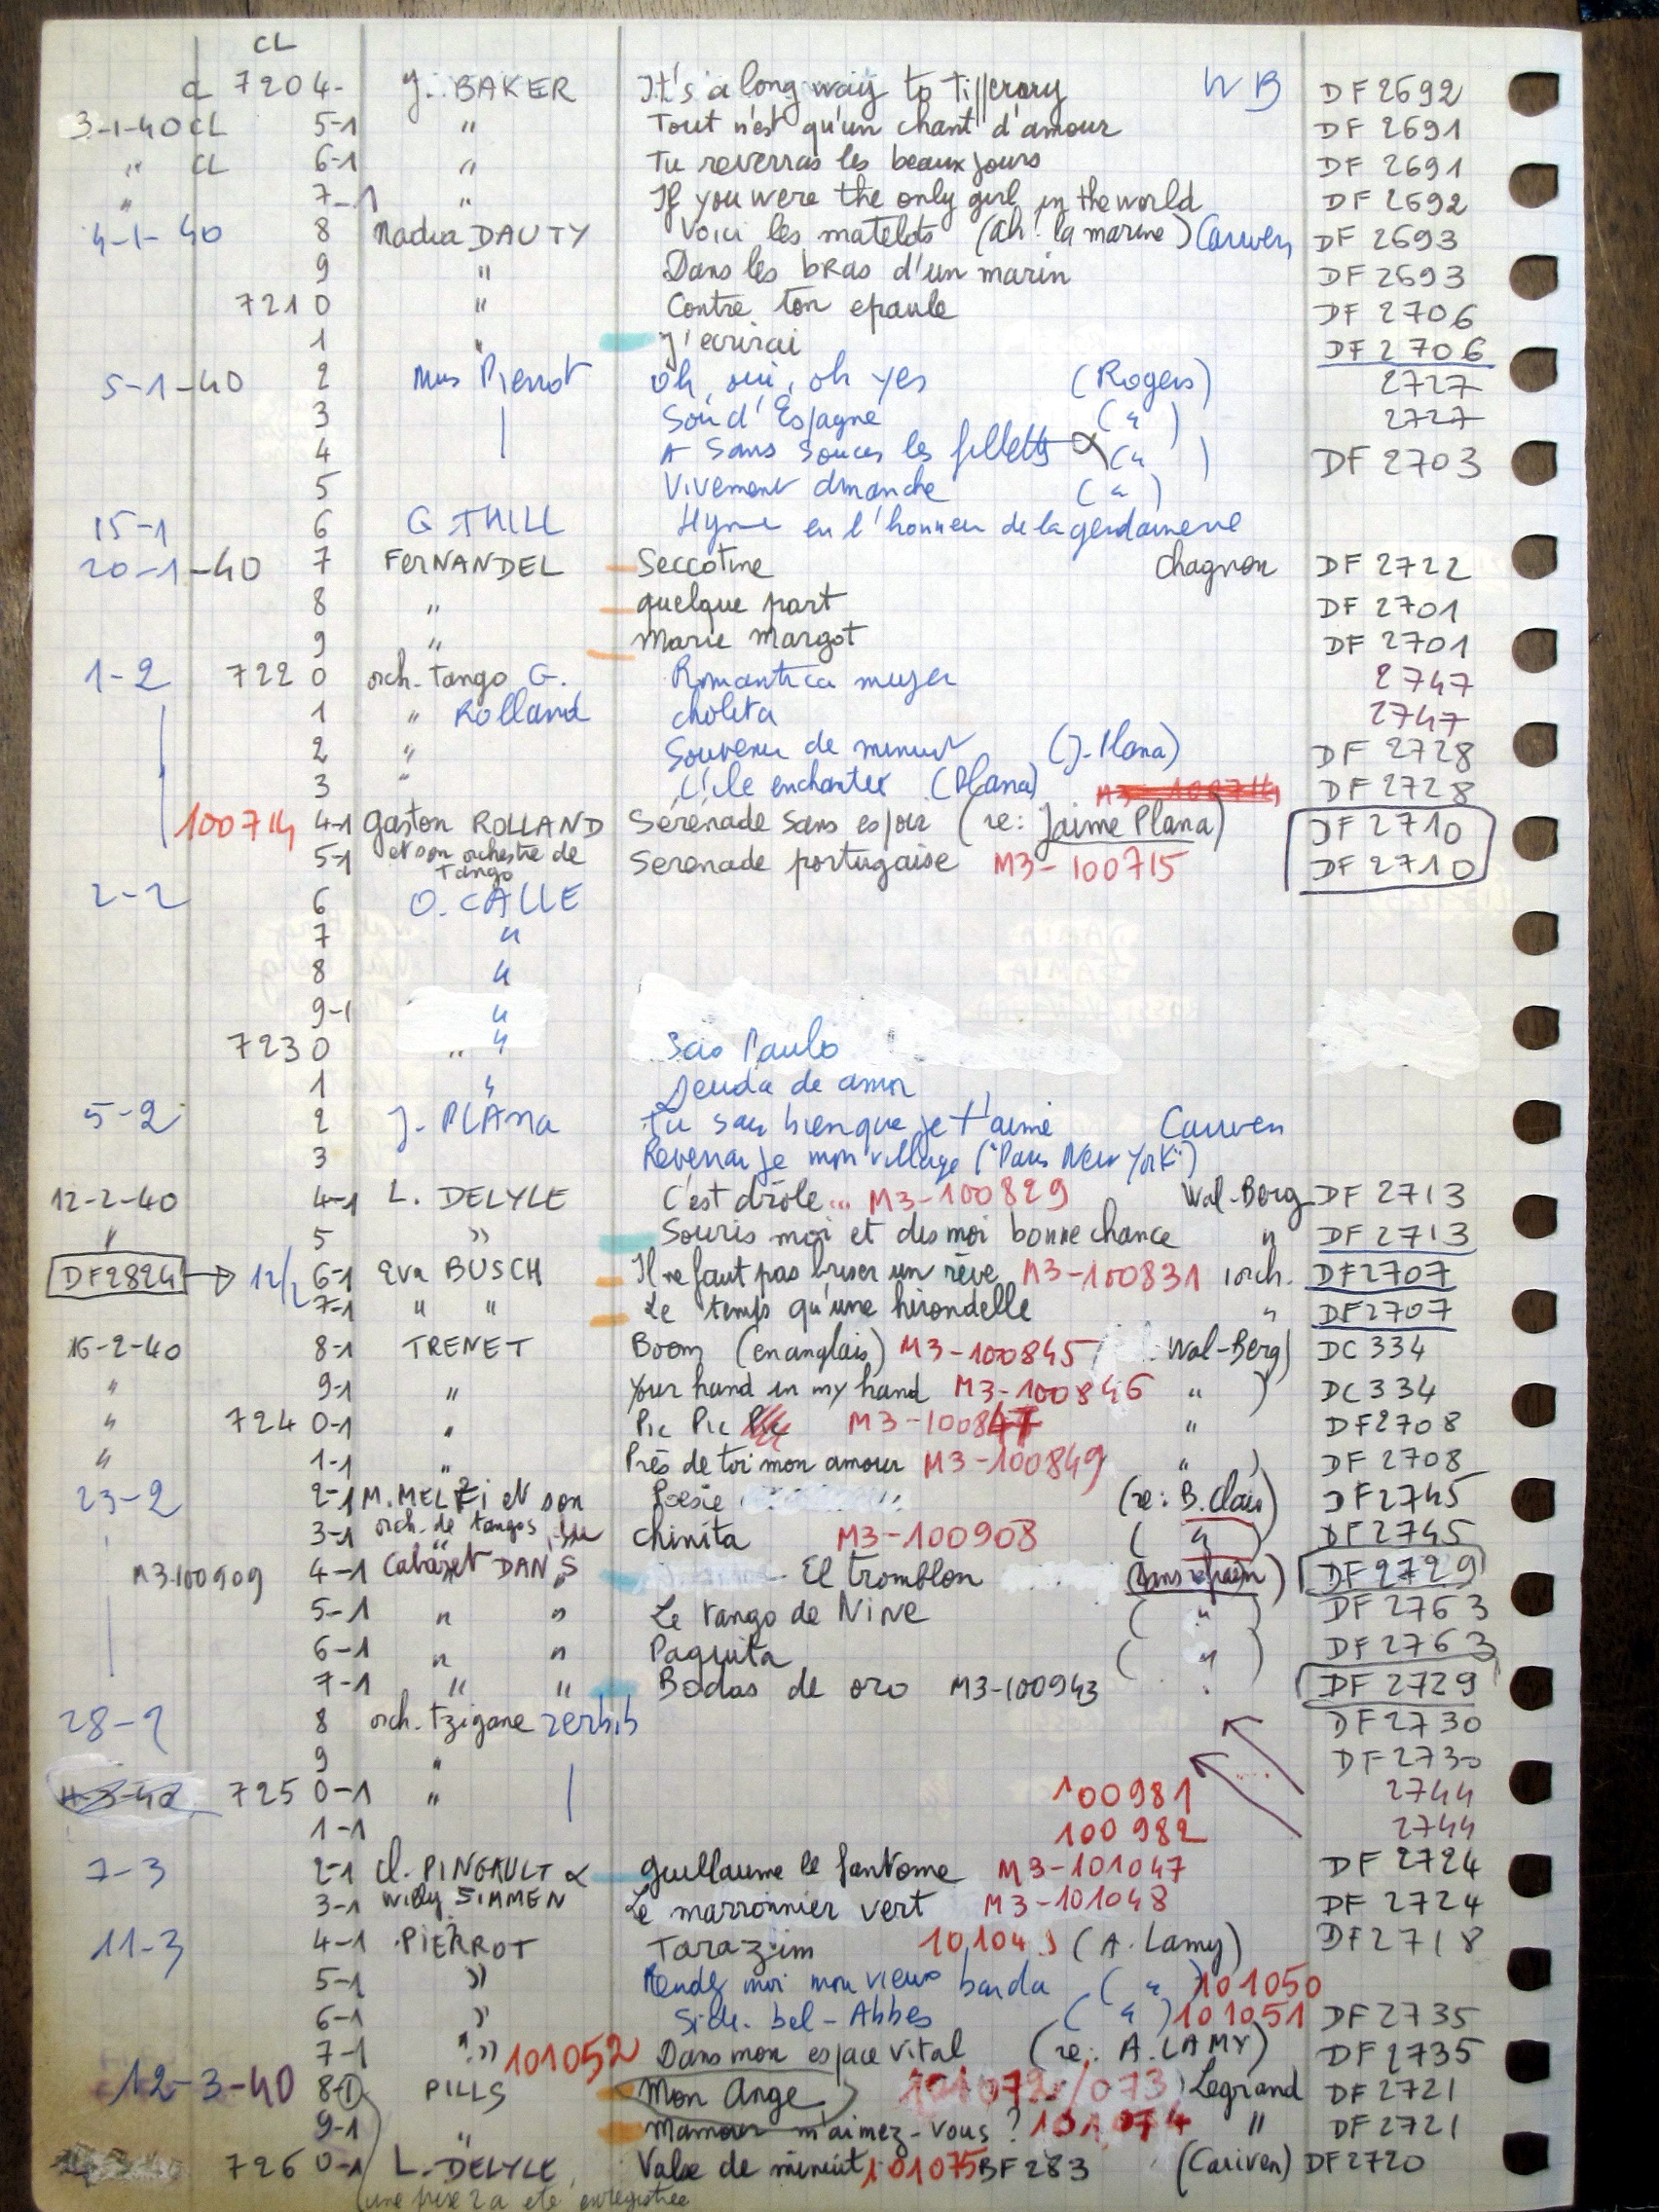 CL
CL 7204- J. BAKER It's a long way to Tillerary WB DF 2692
3-1-40 CL 5-1 " Tout n'est qu'un chant d'amour DF 2691
" CL 6-1 " Tu reverras les beaux jours DF 2691
" 7-1 " If you were the only girl in the world DF 2692
4-1-40 8 Nadia DAUTY Voici les matelots (Ah! la marine) Cariven DF 2693
9 " Dans les bras d'un marin DF 2693
7210 " Contre ton epaule DF 2706
1 " J'ecrirai DF 2706
5-1-40 2 Mus Pierrot oh, oui, oh yes (Rogers) 2727
3 Soir d'Espagne ( " ) 2727
4 A Sans Soucis les fillettes ( " ) DF 2703
5 Vivement dimanche ( " )
15-1 6 G. THILL Hymne en l'honneur de la gendarmerie
20-1-40 7 FERNANDEL Seccotine Chagnon DF 2722
8 " quelque part DF 2701
9 " Marie Margot DF 2701
1-2 7220 orch. tango G. Romantica mujer 2747
1 " Rolland cholita 2747
2 " Souvenir de minuit (J. Plana) DF 2728
3 " L'ile enchantee (Plana) DF 2728
100714 4-1 Gaston ROLLAND Sérénade sans espoir (re: Jaime Plana) DF 2710
5-1 et son orchestre de tango Serenade portugaise M3-100715 DF 2710
2-2 6 O. CALLE
7 "
8 "
9-1 "
7230 " " Sao Paulo
1 " Deuda de amor
5-2 2 J. PLANA Tu sais bien que je t'aime Cariven
3 Reverrai je mon village ("Paris New York")
12-2-40 4-1 L. DELYLE C'est drôle... M3-100829 Wal-Berg DF 2713
" 5 " Souris moi et dis moi bonne chance " DF 2713
DF2824 → 12/2 6-1 Eva BUSCH Il ne faut pas briser un rêve M3-100831 orch. DF2707
7-1 " " Le temps qu'une hirondelle " DF2707
16-2-40 8-1 TRENET Boom (en anglais) M3-100845 Wal-Berg) DC 334
" 9-1 " Your hand in my hand M3-100846 " ) DC 334
" 7240-1 " Pic Pic Pic M3-100847 " DF2708
" 1-1 " Près de toi mon amour M3-100849 " ) DF 2708
23-2 2-1 M. MELFI et son Poesie (re: B. Clair) DF2745
3-1 orch. de tangos du chinita M3-100908 ( " ) DF2745
M3-100909 4-1 Cabaret DAN'S El tromblon (sans refrain) DF2729
5-1 " " Le tango de NINE ( " ) DF 2763
6-1 " " Paquita ( " ) DF 2763
7-1 " " Bodas de oro M3-100943 DF 2729
28-2 8 orch. tzigane zerbib DF2730
9 " DF2730
7250-1 " 100981 2744
1-1 100982 2744
7-3 2-1 Cl. PINGAULT & Guillaume le fantome M3-101047 DF 2724
3-1 Willy SIMMEN Le marronnier vert M3-101048 DF 2724
11-3 4-1 PIERROT Tarazim 101049 (A. Lamy) DF2718
5-1 " Rendez moi mon vieux barda ( " ) 101050
6-1 " Sidi-bel-Abbes ( " ) 101051 DF 2735
7-1 " 101052 Dans mon espace vital (re: A. LAMY) DF 2735
12-3-40 8-1 PILLS Mon Ange 101072/073) Legrand DF 2721
9-1 " Mamour m'aimez-vous? 101074 " DF 2721
7260-1 L. DELYLE Valse de minuit 101075 BF 283 (Cariven) DF2720
(une prise 2 a été enregistrée